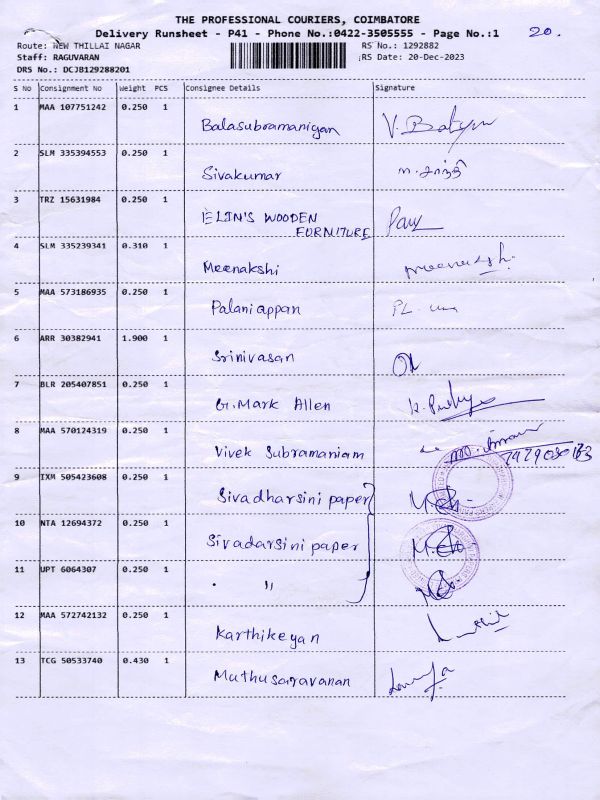 THE PROFESSIONAL COURIERS, COIMBATORE
Delivery Runsheet - P41 - Phone No.:0422-3505555 - Page No.:1 20.
Route: NEW THILLAI NAGAR RS No.: 1292882
Staff: RAGUVARAN RS Date: 20-Dec-2023
DRS No.: DCJB129288201
S No Consignment No Weight PCS Consignee Details Signature
1 MAA 107751242 0.250 1
Balasubramaniyan
2 SLM 335394553 0.250 1
Sivakumar
3 TRZ 15631984 0.250 1
ELIN'S WOODEN
FURNITURE
4 SLM 335239341 0.310 1
Meenakshi
5 MAA 573186935 0.250 1
Palaniappan PL.
6 ARR 30382941 1.900 1
Srinivasan
7 BLR 205407851 0.250 1
G.Mark Allen
8 MAA 570124319 0.250 1
Vivek Subramaniam
9 IXM 505423608 0.250 1
Sivadharsini paper
10 NTA 12694372 0.250 1
Sivadarsini paper
11 UPT 6064307 0.250 1
"
12 MAA 572742132 0.250 1
Karthikeyan
13 TCG 50533740 0.430 1
Muthusaravanan